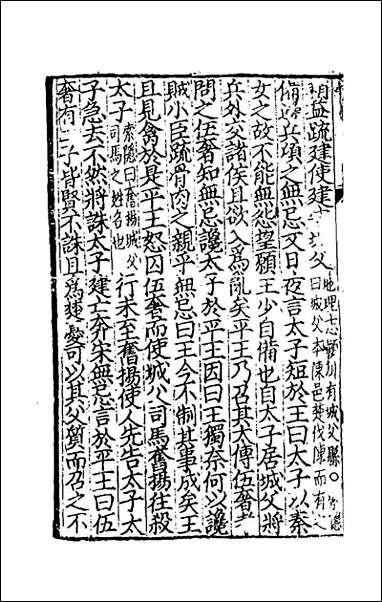 益疏建使建城父地理志潁川有城父縣○索隱曰城父本陳邑楚伐陳而有之
備兵頃之無忌又日夜言太子短於王曰太子以秦
女之故不能無怨望願王少自備也自太子居城父將
兵外交諸侯且欲入為亂矣平王乃召其太傅伍奢考
問之伍奢知無忌讒太子於平王因曰王獨奈何以讒
賊小臣疏骨肉之親乎無忌曰王今不制其事成矣王
且見禽於是平王怒囚伍奢而使城父司馬奮揚往殺
太子索隱曰奮揚城父司馬之姓名也行未至奮揚使人先告太子太
子急去不然將誅太子建亡奔宋無忌言於平王曰伍
奢有二子皆賢不誅且為楚憂可以其父質而召之不